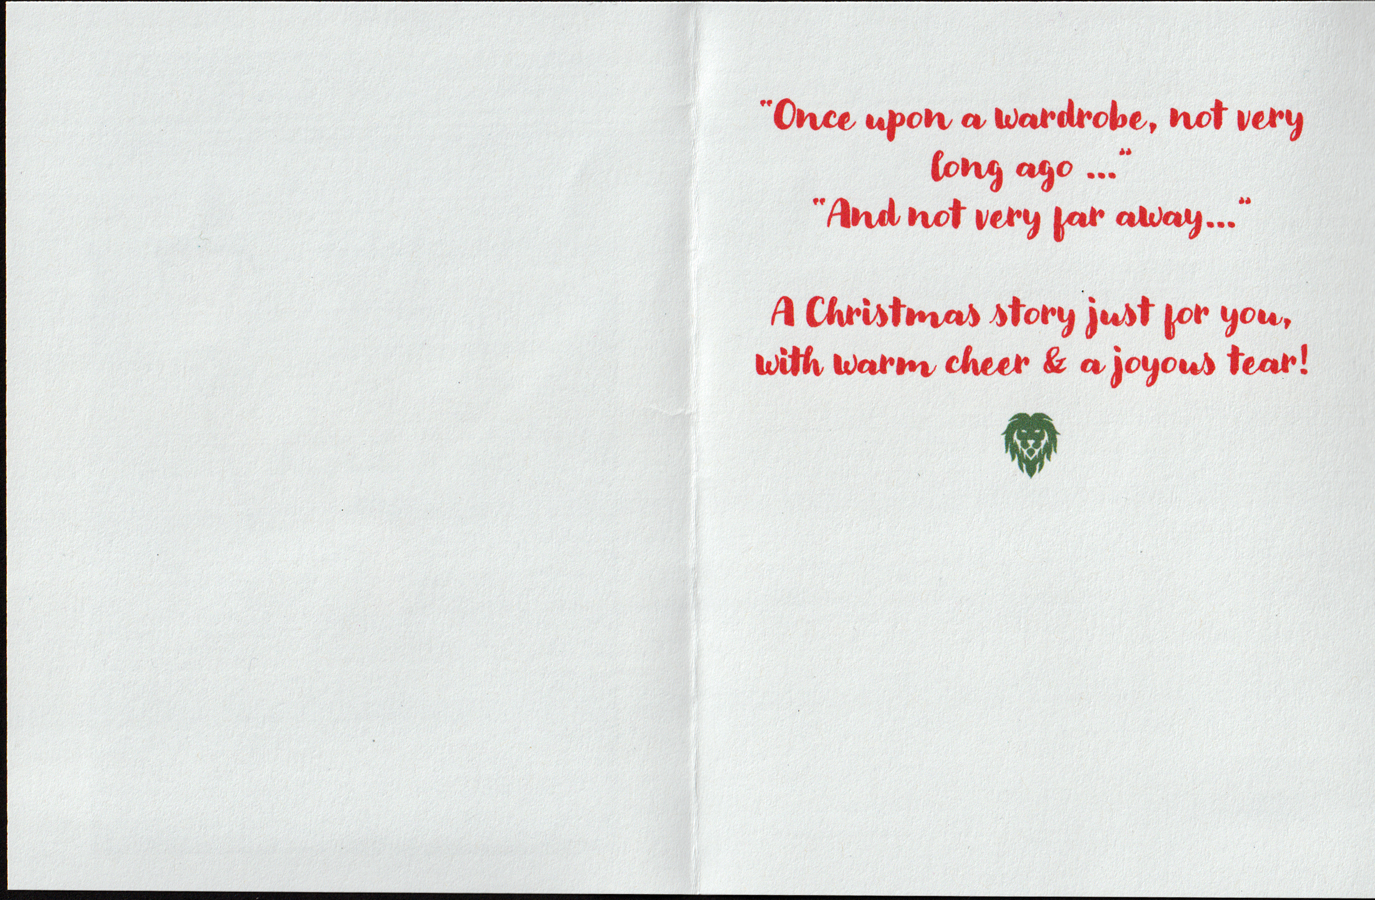 "Once upon a wardrobe, not very
long ago ..."
"And not very far away..."
A Christmas story just for you,
with warm cheer & a joyous tear!